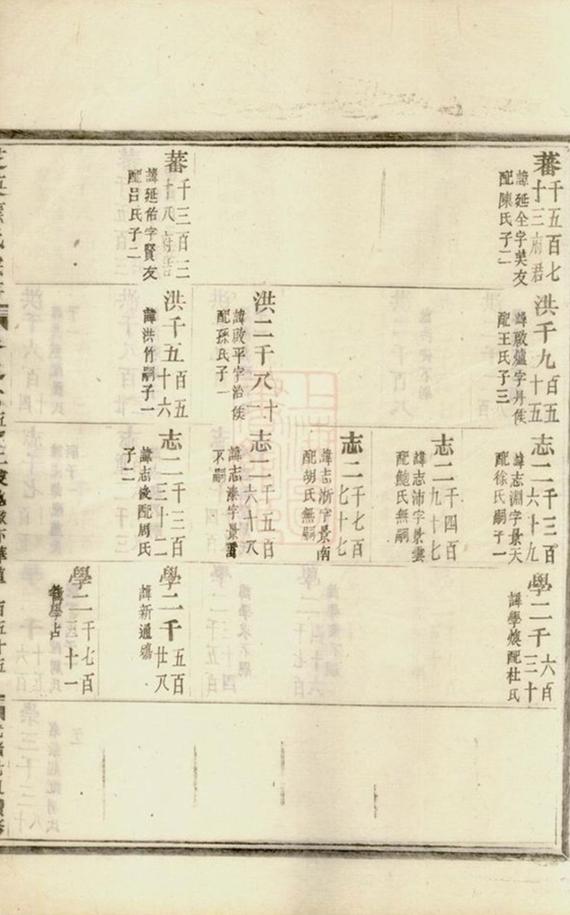 蕃千五百七
十三府君
諱延全字美友
配陳氏子二
蕃千三百二
十八府君
諱延佑字賢友
配呂氏子二
洪千九百五
十五
字丹侯
配王氏子三
洪二千八十
一
諱啟平字治侯
配孫氏子一
洪千五百五
十六
諱洪竹嗣子一
志二千三百
六十九
諱志淵字景天
配徐氏嗣子一
志二千四百
九十七
諱志沛字景雲
配鮑氏無嗣
志二千七百
七十七
諱志浙字景南
配胡氏無嗣
志二千五百
六十八
諱志溱字景
不嗣
志二千三百
三十二
諱志俊配周氏
子二
學二千六百
三十
諱學煥配杜氏
學二千五百
廿八
諱新通
學二千七百
三十一
諱學占